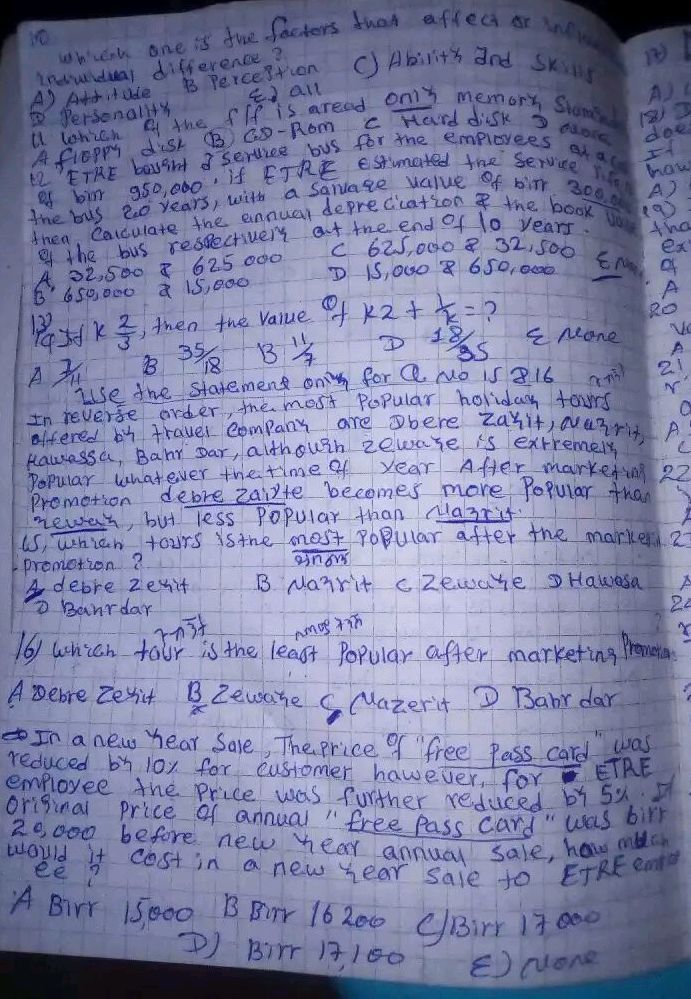 10
which one is the factors that affect or
individual difference?
A) Attitude B Perception C) Ability and Skills
D Personality E) all
11 which of the f/f is aread only memory
A floppy disk B CD-Rom C Hard disk D
12 ETRE bought a service bus for the employees at a
of birr 950,000. if ETRE estimated the service
the bus 20 years, with a salvage value of birr 300,
then calculate the annual depreciation & the book
of the bus respectively at the end of 10 years.
A 32,500 & 625 000 C 625,000 & 32,500
B 650,000 & 15,000 D 15,000 & 650,000 E
13) If k 2/3, then the value of k2 + 1/k = ?
A 7/11 B 35/18 B 11/7 D 18/35 E None
Use the statement only for Q No 15 & 16
In reverse order, the most popular holiday tours
offered by travel company are Dbere Zayit, Nazrit,
Hawassa, Bahr Dar, although zewaye is extremely
popular whatever the time of year After marketing
Promotion debre zaiyte becomes more popular than
zeway, but less popular than Nazrit.
15, which tours is the most popular after the market
promotion ?
A debre zeyit B Nazrit C Zewaye D Hawasa
D Bahrdar
16) which tour is the least popular after marketing Promotion
A Debre Zeyit B Zewaye C Nazerit D Bahr dar
In a new year sale, The price of "free pass card" was
reduced by 10% for customer however, for ETRE
employee the price was further reduced by 5%. If
original price of annual "free pass card" was birr
20,000 before new year annual sale, how much
would it cost in a new year sale to ETRE
ee ?
A Birr 15,000 B Birr 16 200 C) Birr 17 000
D) Birr 17,100 E) None
17)
A)
18)
doe
It
how
A)
19)
tha
ex
of
A
20
A
21
A
C
22